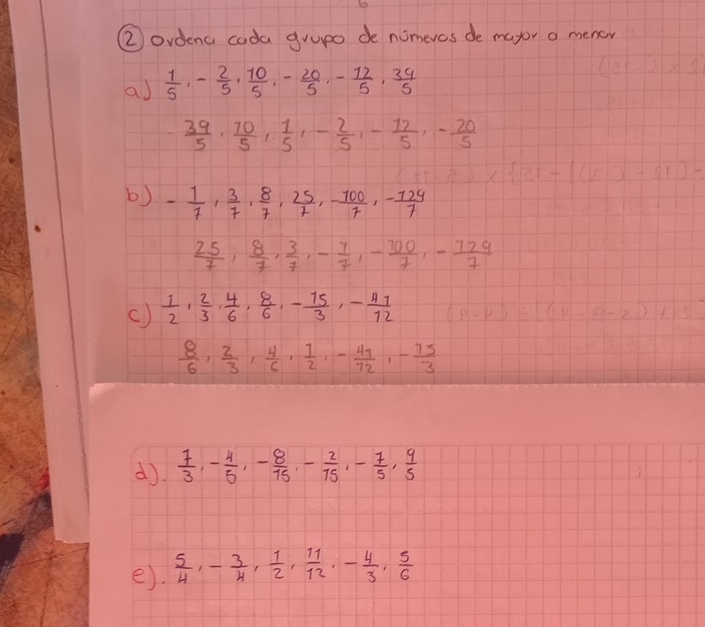 ② Ordena cada grupo de números de mayor a menor
a) 1/5, -2/5, 10/5, -20/5, -12/5, 39/5
39/5, 10/5, 1/5, -2/5, -12/5, -20/5
b) -1/7, 3/7, 8/7, 25/7, -100/7, -129/7
25/7, 8/7, 3/7, -1/7, -100/7, -129/7
c) 1/2, 2/3, 4/6, 8/6, -15/3, -41/12
8/6, 2/3, 4/6, 1/2, -41/12, -15/3
d). 7/3, -4/5, -8/15, -2/15, -7/5, 9/5
e). 5/4, -3/4, 1/2, 11/12, -4/3, 5/6